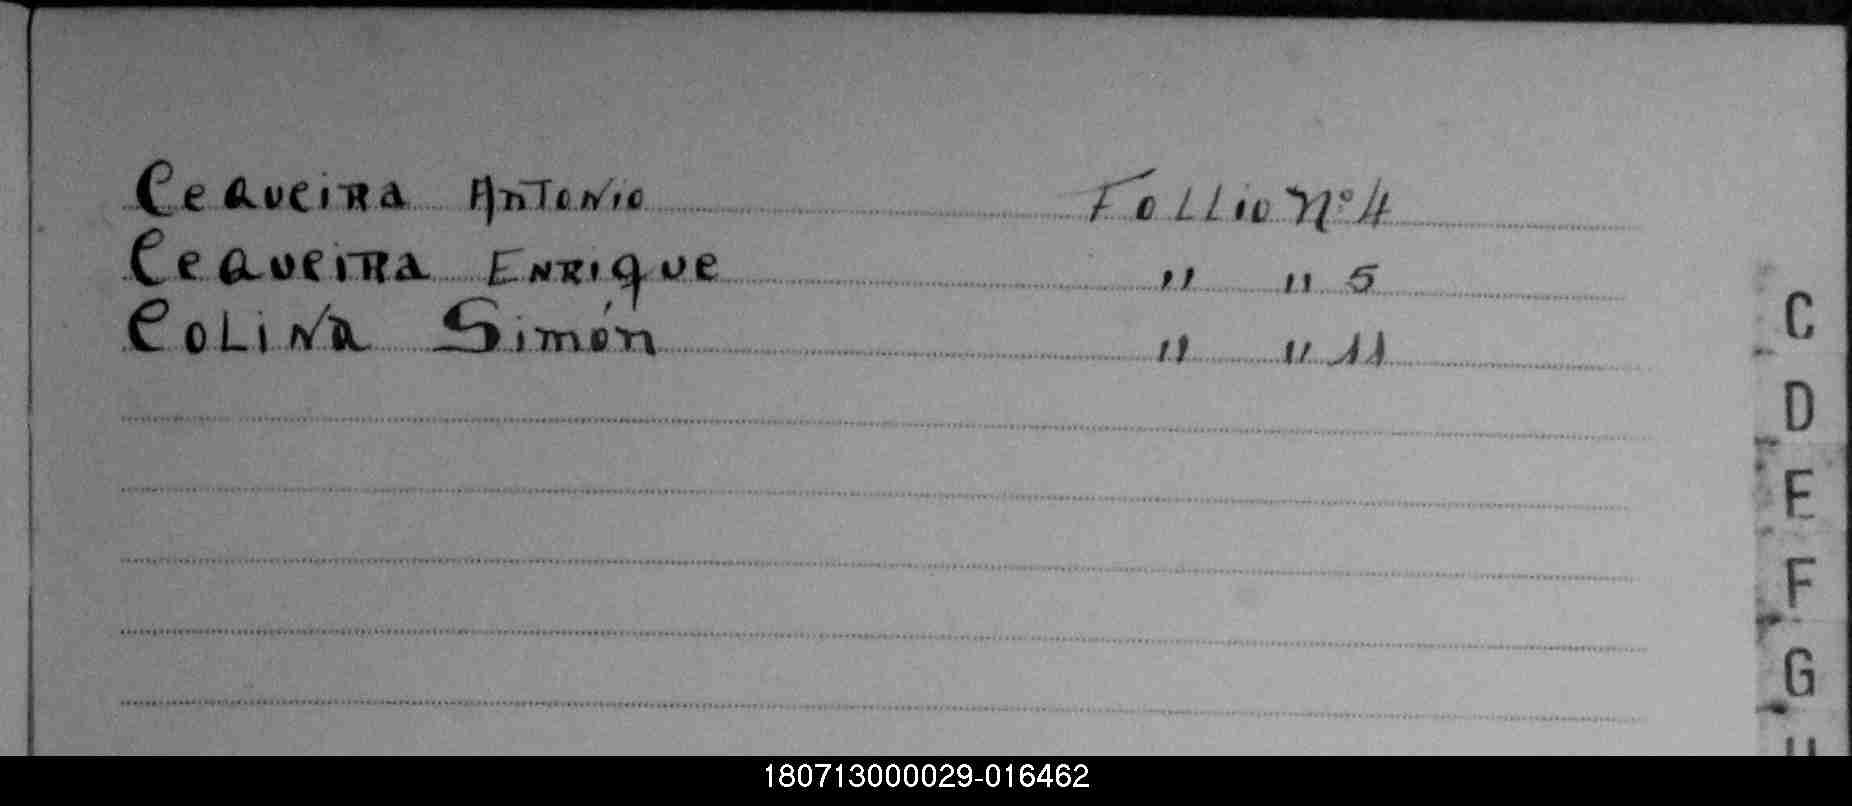 Ceqveira Antonio Follio Nº 4
Ceqveira Enrique " " 5
Colina Simón " " 11
C
D
E
F
G
180713000029-016462